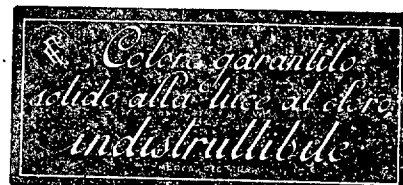 F Colore garantito
solido alla luce al cloro
indistruttibile